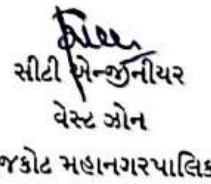 સીટી એન્જીનીયર
વેસ્ટ ઝોન
જકોટ મહાનગરપાલિક